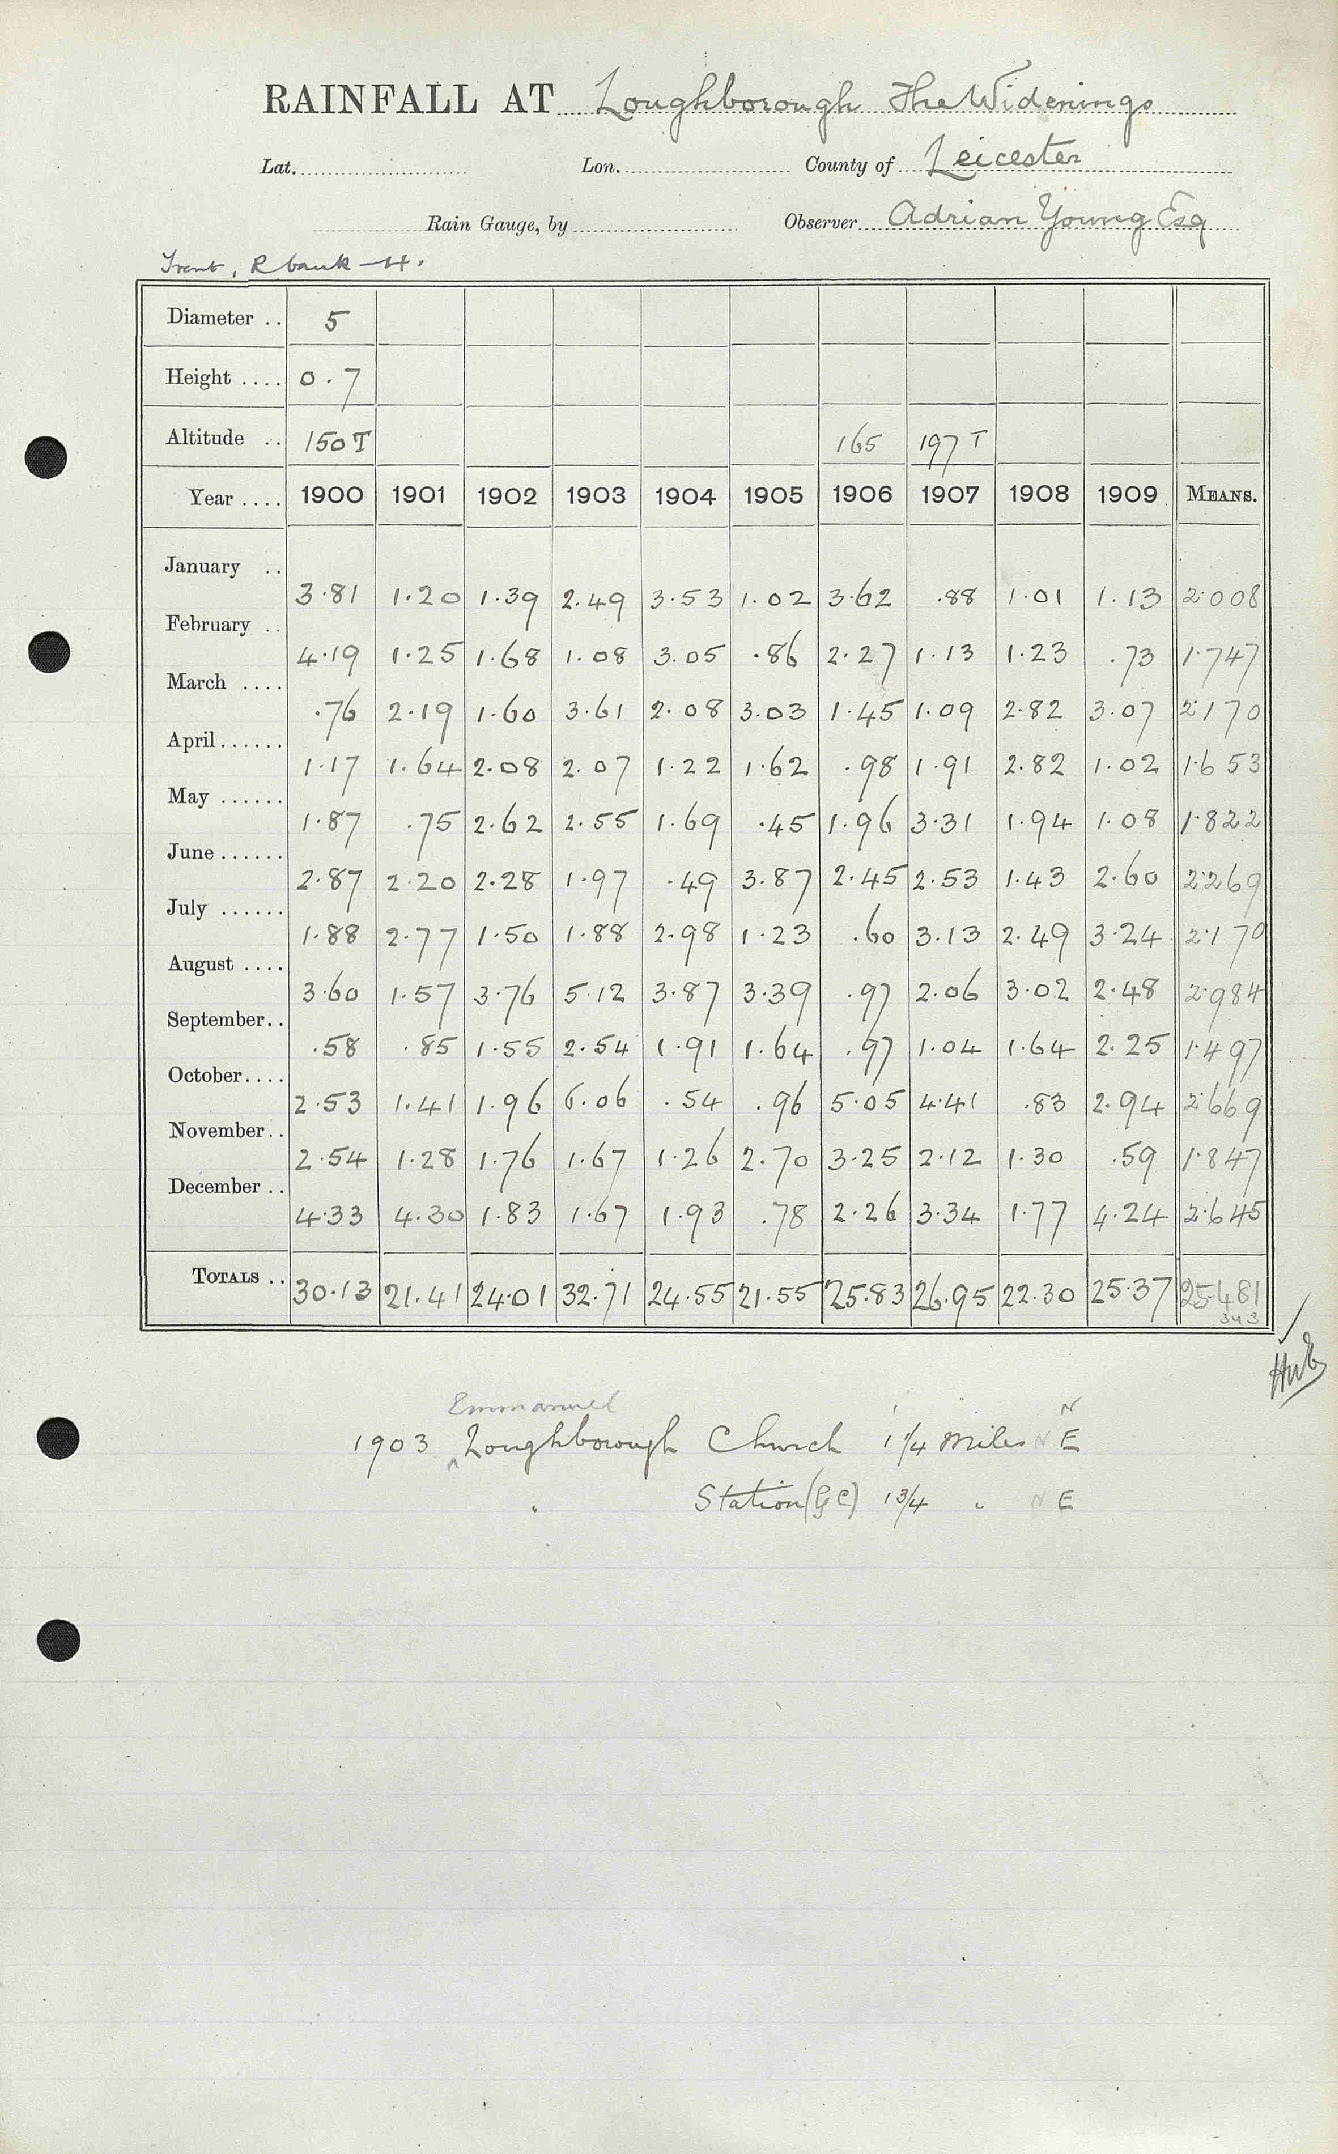 RAINFALL AT Loughborough The Widenings
Lat. Lon. County of Leicester
Rain Gauge, by Observer Adrian Young Esq
Trent, R bank -4.
Diameter .. 5
Height .... 0.7
Altitude .. 150T 165 197T
Year .... 1900 1901 1902 1903 1904 1905 1906 1907 1908 1909 MEANS.
January .. 3.81 1.20 1.39 2.49 3.53 1.02 3.62 .88 1.01 1.13 2.008
February .. 4.19 1.25 1.68 1.08 3.05 .86 2.27 1.13 1.23 .73 1.747
March .... .76 2.19 1.60 3.61 2.08 3.03 1.45 1.09 2.82 3.07 2.170
April...... 1.17 1.64 2.08 2.07 1.22 1.62 .98 1.91 2.82 1.02 1.653
May ...... 1.87 .75 2.62 2.55 1.69 .45 1.96 3.31 1.94 1.08 1.822
June...... 2.87 2.20 2.28 1.97 .49 3.87 2.45 2.53 1.43 2.60 2.269
July ...... 1.88 2.77 1.50 1.88 2.98 1.23 .60 3.13 2.49 3.24 2.170
August .... 3.60 1.57 3.76 5.12 3.87 3.39 .97 2.06 3.02 2.48 2.984
September.. .58 .85 1.55 2.54 1.91 1.64 .97 1.04 1.64 2.25 1.497
October.... 2.53 1.41 1.96 6.06 .54 .96 5.05 4.41 .83 2.94 2.669
November.. 2.54 1.28 1.76 1.67 1.26 2.70 3.25 2.12 1.30 .59 1.847
December .. 4.33 4.30 1.83 1.67 1.93 .78 2.26 3.34 1.77 4.24 2.645
TOTALS .. 30.13 21.41 24.01 32.71 24.55 21.55 25.83 26.95 22.30 25.37 25.481
343
Emmanuel N
1903 Loughborough Church 1 1/4 Miles N E
" Station (G C) 1 3/4 " N E